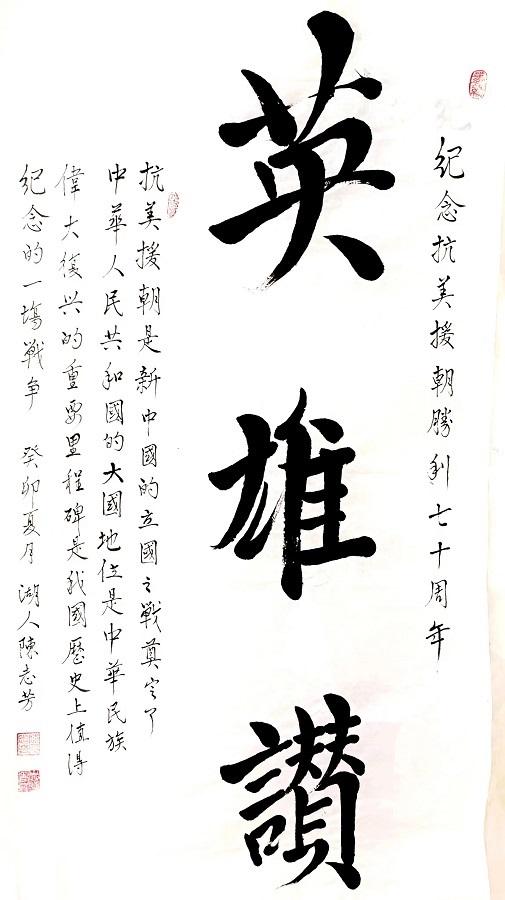 紀念抗美援朝勝利七十周年
英雄讃
抗美援朝是新中國的立國之戰奠定了
中華人民共和國的大國地位是中華民族
偉大復兴的重要里程碑是我國歷史上值得
紀念的一場戰争 癸卯夏月 湖人陳志芳